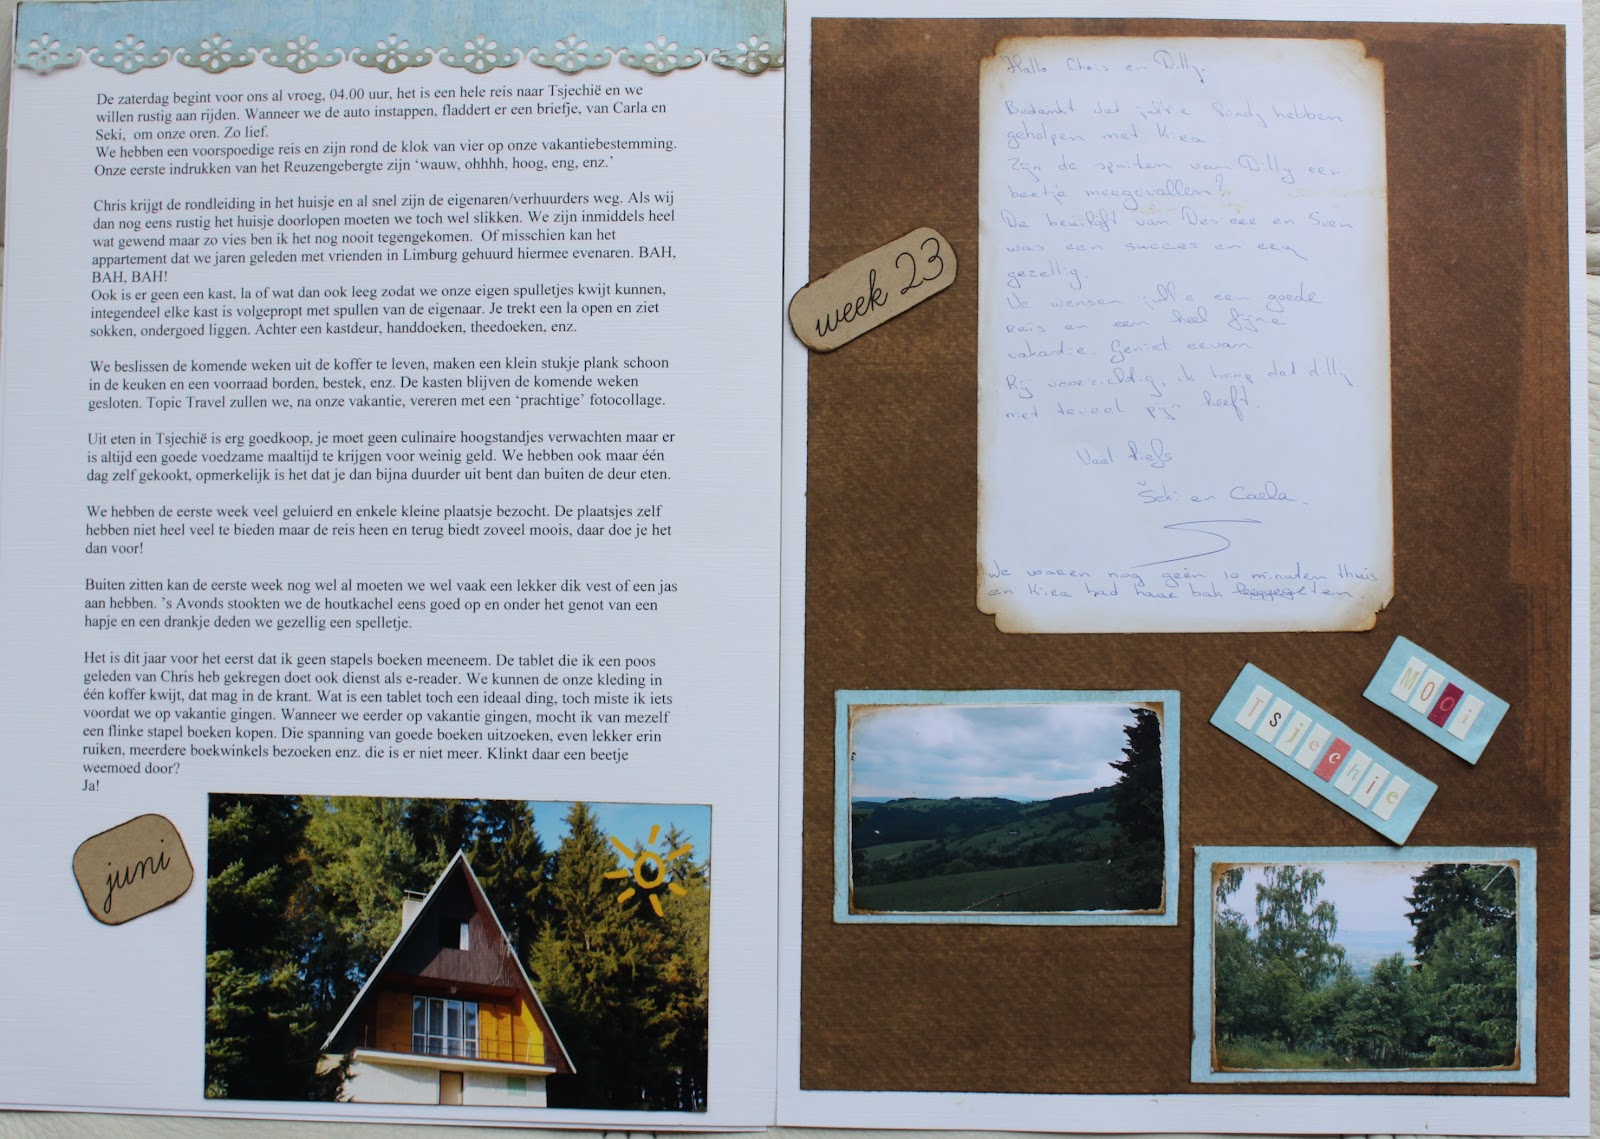 De zaterdag begint voor ons al vroeg, 04.00 uur, het is een hele reis naar Tsjechië en we
willen rustig aan rijden. Wanneer we de auto instappen, fladdert er een briefje, van Carla en
Seki, om onze oren. Zo lief.
We hebben een voorspoedige reis en zijn rond de klok van vier op onze vakantiebestemming.
Onze eerste indrukken van het Reuzengebergte zijn ‘wauw, ohhhh, hoog, eng, enz.’
Chris krijgt de rondleiding in het huisje en al snel zijn de eigenaren/verhuurders weg. Als wij
dan nog eens rustig het huisje doorlopen moeten we toch wel slikken. We zijn inmiddels heel
wat gewend maar zo vies ben ik het nog nooit tegengekomen. Of misschien kan het
appartement dat we jaren geleden met vrienden in Limburg gehuurd hiermee evenaren. BAH,
BAH, BAH!
Ook is er geen een kast, la of wat dan ook leeg zodat we onze eigen spulletjes kwijt kunnen,
integendeel elke kast is volgepropt met spullen van de eigenaar. Je trekt een la open en ziet
sokken, ondergoed liggen. Achter een kastdeur, handdoeken, theedoeken, enz.
We beslissen de komende weken uit de koffer te leven, maken een klein stukje plank schoon
in de keuken en een voorraad borden, bestek, enz. De kasten blijven de komende weken
gesloten. Topic Travel zullen we, na onze vakantie, vereren met een ‘prachtige’ fotocollage.
Uit eten in Tsjechië is erg goedkoop, je moet geen culinaire hoogstandjes verwachten maar er
is altijd een goede voedzame maaltijd te krijgen voor weinig geld. We hebben ook maar één
dag zelf gekookt, opmerkelijk is het dat je dan bijna duurder uit bent dan buiten de deur eten.
We hebben de eerste week veel geluierd en enkele kleine plaatsje bezocht. De plaatsjes zelf
hebben niet heel veel te bieden maar de reis heen en terug biedt zoveel moois, daar doe je het
dan voor!
Buiten zitten kan de eerste week nog wel al moeten we wel vaak een lekker dik vest of een jas
aan hebben. ’s Avonds stookten we de houtkachel eens goed op en onder het genot van een
hapje en een drankje deden we gezellig een spelletje.
Het is dit jaar voor het eerst dat ik geen stapels boeken meeneem. De tablet die ik een poos
geleden van Chris heb gekregen doet ook dienst als e-reader. We kunnen de onze kleding in
één koffer kwijt, dat mag in de krant. Wat is een tablet toch een ideaal ding, toch miste ik iets
voordat we op vakantie gingen. Wanneer we eerder op vakantie gingen, mocht ik van mezelf
een flinke stapel boeken kopen. Die spanning van goede boeken uitzoeken, even lekker erin
ruiken, meerdere boekwinkels bezoeken enz. die is er niet meer. Klinkt daar een beetje
weemoed door?
Ja!
juni
week 23
Hallo Chris en Dilly.
Bedankt dat jullie hebben
geholpen met Kiea
Zijn de spuiten van Dilly een
beetje meegevallen?
De bruiloft van Desiree en Sven
was een succes en
gezellig.
We wensen jullie een goede
reis en een heel fijne
vakantie. Geniet ervan
Rij voorzichtig, ik hoop dat dilly
niet teveel pijn heeft.
Veel liefs
Šeki en Carla.
We waren nog geen 10 minuten thuis
en Kiea had haar bak
Mooi
Tsjechie